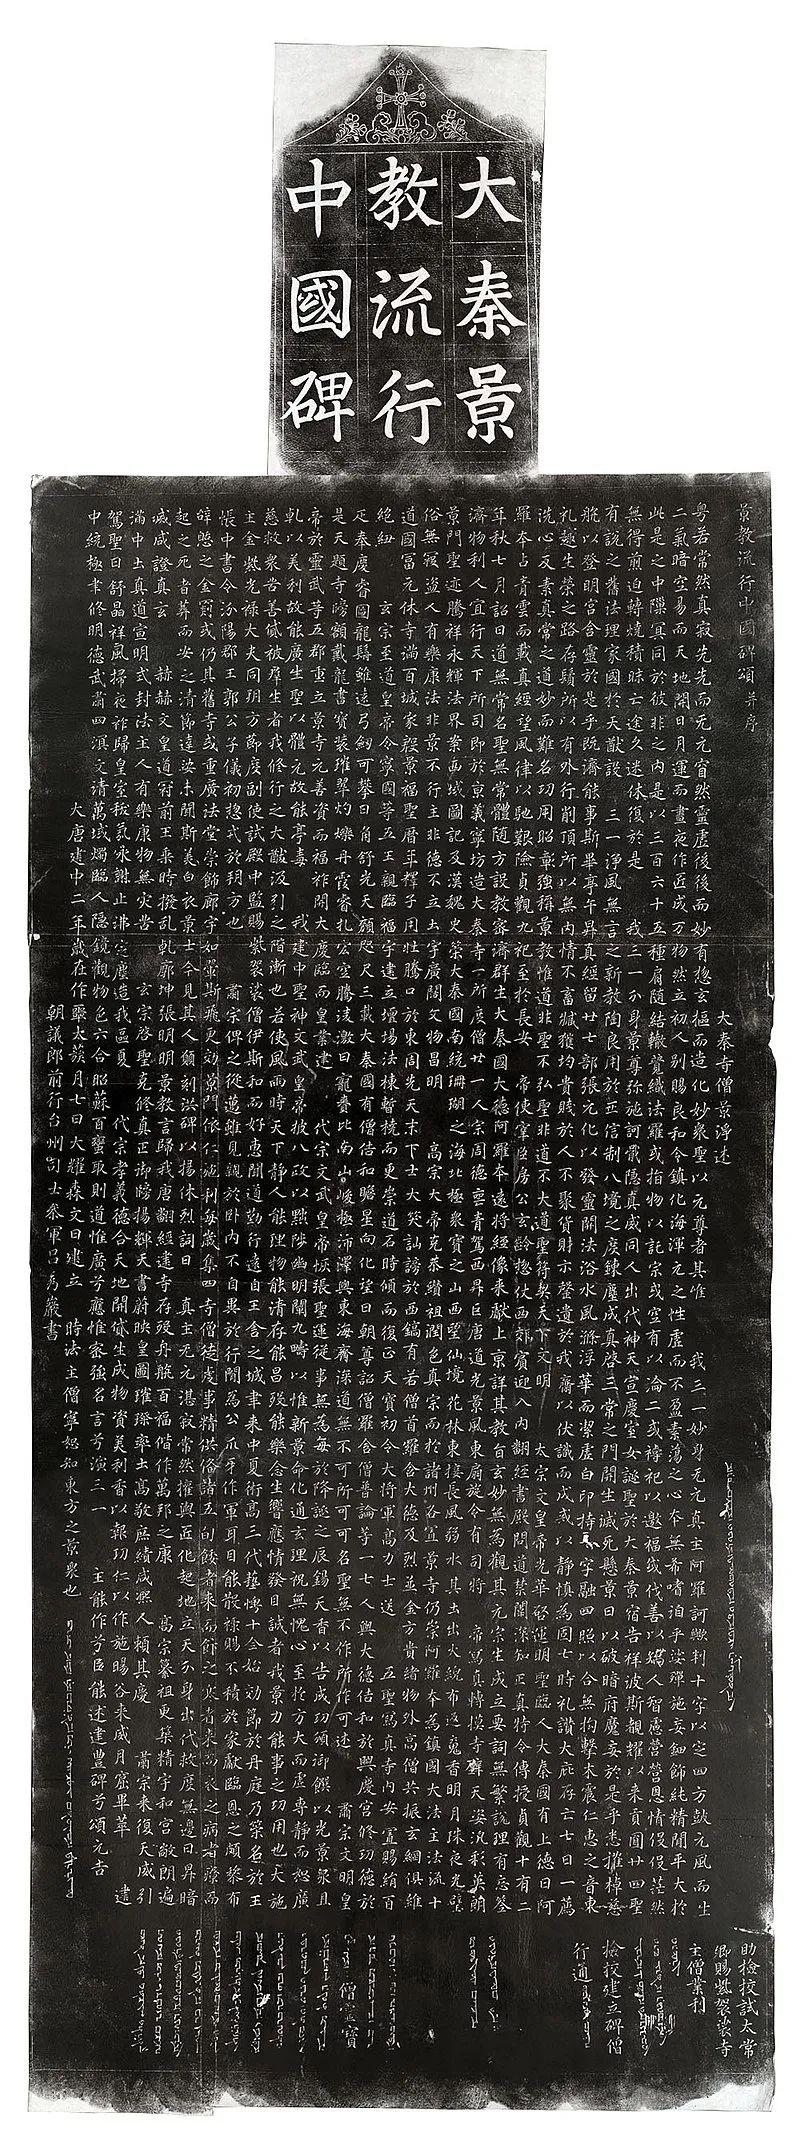 大秦景
教流行
中國碑
景教流行中國碑頌并序
大秦寺僧景淨述
粵若常然真寂先先而无元窅然靈虛後後而妙有惣玄樞而造化妙衆聖以元尊者其唯 我三一妙身无元真主阿羅訶歟判十字以定四方鼓元風而生
二氣暗空易而天地開日月運而晝夜作匠成万物然立初人别賜良和令鎮化海渾元之性虛而不盈素蕩之心本無希嗜洎乎娑殫施妄鈿飾純精閒平大於
此是之中隟冥同於彼非之內是以三百六十五種肩隨結轍競織法羅或指物以託宗或空有以淪二或禱祀以邀福或伐善以矯人智慮營營恩情役役茫然
無得煎迫轉燒積昧亡途久迷休復於是 我三一分身景尊弥施訶戢隱真威同人出代神天宣慶室女誕聖於大秦景宿告祥波斯覩耀以來貢圓廿四聖
有說之舊法理家國於大猷設 三一淨風無言之新教陶良用於正信制八境之度鍊塵成真啓三常之門開生滅死懸景日以破暗府魔妄於是乎悉摧棹慈
航以登明宮含靈於是乎既濟能事斯畢亭午昇真經留廿七部張元化以發靈關法浴水風滌浮華而潔虛白印持十字融四照以合無拘擊木震仁惠之音東
礼趣生榮之路存鬚所以有外行削頂所以無內情不畜臧獲均貴賤於人不聚貨財示罄遺於我齋以伏識而成戒以靜慎為固七時礼讚大庇存亡七日一薦
洗心反素真常之道妙而難名功用昭彰強稱景教惟道非聖不弘聖非道不大道聖符契天下文明 太宗文皇帝光華啓運明聖臨人大秦國有上德曰阿
羅本占青雲而載真經望風律以馳艱險貞觀九祀至於長安 帝使宰臣房公玄齡惣仗西郊賓迎入內翻經書殿問道禁闈深知正真特令傳授貞觀十有二
年秋七月詔曰道無常名聖無常體随方設教密濟群生大秦國大德阿羅本遠將經像來獻上京詳其教旨玄妙無為觀其元宗生成立要詞無繁說理有忘筌
濟物利人宜行天下所司即於京義寧坊造大秦寺一所度僧廿一人宗周德喪青駕西昇巨唐道光景風東扇旋令有司將 帝寫真轉摸寺壁天姿汎彩英朗
景門聖迹騰祥永輝法界案西域圖記及漢魏史策大秦國南統珊瑚之海北極衆寶之山西望仙境花林東接長風弱水其土出火綄布返魂香明月珠夜光璧
俗無寇盜人有樂康法非景不行主非德不立土宇廣闊文物昌明 高宗大帝克恭纘祖潤色真宗而於諸州各置景寺仍崇阿羅本為鎮國大法主法流十
道國富元休寺滿百城家殷景福聖曆年釋子用壯騰口於東周先天末下士大笑訕謗於西鎬有若僧首羅含大德及烈並金方貴緒物外高僧共振玄網俱維
絕紐 玄宗至道皇帝令寧國等五王親臨福宇建立壇場法棟暫橈而更崇道石時傾而復正天寶初令大將軍高力士送 五聖寫真寺內安置賜絹百
疋奉慶睿圖龍髯雖遠弓劍可攀日角舒光天顏咫尺三載大秦國有僧佶和瞻星向化望日朝尊詔僧羅含僧普論等一七人與大德佶和於興慶宮修功德於
是天題寺牓額戴龍書寶裝璀翠灼爍丹霞睿扎宏空騰凌激日寵賚比南山峻極沛澤與東海齊深道無不可所可可名聖無不作所作可述 肅宗文明皇
帝於靈武等五郡重立景寺元善資而福祚開大慶臨而皇業建 代宗文武皇帝恢張聖運從事無為每於降誕之辰錫天香以告成功頒御饌以光景衆且
乹以美利故能廣生聖以體元故能亭毒 我建中聖神文武皇帝披八政以黜陟幽明闡九疇以惟新景命化通玄理祝無愧心至於方大而虛專靜而恕廣
慈救衆苦善貸被群生者我修行之大猷汲引之階漸也若使風雨時天下靜人能理物能清存能昌歿能樂念生響應情發目誠者我景力能事之功用也大施
主金紫光祿大夫同朔方節度副使試殿中監賜紫袈裟僧伊斯和而好惠聞道勤行遠自王舍之城聿來中夏術高三代藝博十全始効節於丹庭乃策名於王
帳中書令汾陽郡王郭公子儀初惣戎於朔方也 肅宗俾之從邁雖見親於臥內不自異於行間為公爪牙作軍耳目能散祿賜不積於家獻臨恩之頗黎布
辭憩之金罽或仍其舊寺或重廣法堂崇飾廊宇如翬斯飛更効景門依仁施利每歲集四寺僧徒虔事精供備諸五旬餧者來而飯之寒者來而衣之病者療而
起之死者葬而安之清節達娑未聞斯美白衣景士今見其人願刻洪碑以揚休烈詞曰 真主无元湛寂常然權輿匠化起地立天分身出代救度無邊日昇暗
滅咸證真玄 赫赫文皇道冠前王乘時撥亂乹廓坤張明明景教言歸我唐翻經建寺存歿舟航百福偕作萬邦之康 高宗纂祖更築精宇和宮敞朗遍
滿中土真道宣明式封法主人有樂康物無災苦 玄宗啓聖克修真正御牓揚輝天書蔚映皇圖璀璨率土高敬庶績咸熙人賴其慶 肅宗來復天威引
駕聖日舒晶祥風掃夜祚歸皇室祅氛永謝止沸定塵造我區夏 代宗孝義德合天地開貸生成物資美利香以報功仁以作施暘谷來威月窟畢萃 建
中統極聿修明德武肅四溟文清萬域燭臨人隱鏡觀物色六合昭蘇百蠻取則道惟廣兮應惟密強名言兮演三一 主能作兮臣能述建豐碑兮頌元吉
大唐建中二年歲在作噩太蔟月七日大耀森文日建立 時法主僧寧恕知東方之景衆也
朝議郎前行台州司士參軍呂秀巖書
助撿挍試太常
卿賜紫袈裟寺
主僧業利
撿挍建立碑僧
行通
僧靈寶